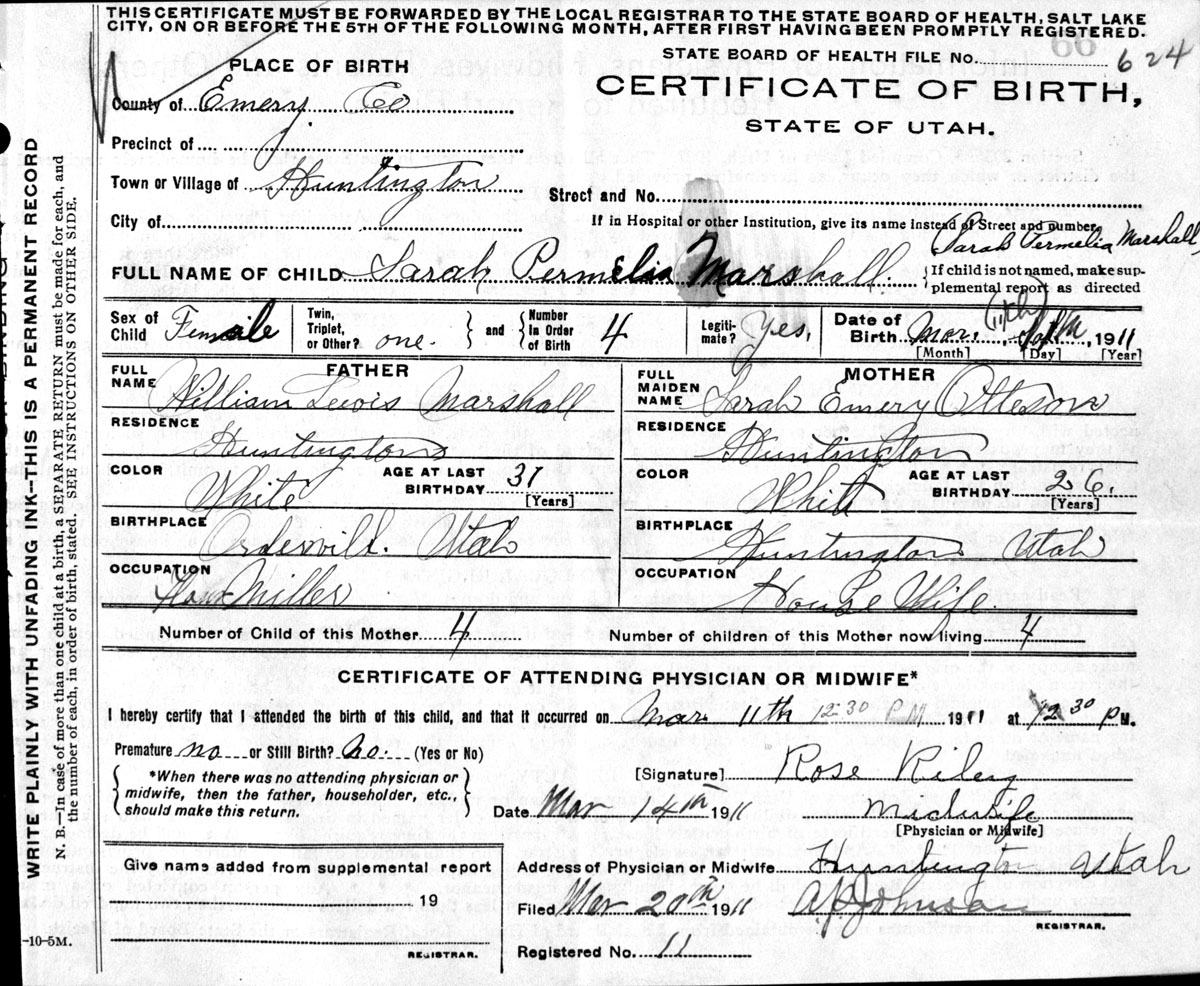 THIS CERTIFICATE MUST BE FORWARDED BY THE LOCAL REGISTRAR TO THE STATE BOARD OF HEALTH, SALT LAKE
CITY, ON OR BEFORE THE 5TH OF THE FOLLOWING MONTH, AFTER FIRST HAVING BEEN PROMPTLY REGISTERED.
STATE BOARD OF HEALTH FILE No. 624
PLACE OF BIRTH
CERTIFICATE OF BIRTH,
STATE OF UTAH.
County of Emery Co
Precinct of
Town or Village of Huntington
Street and No.
City of
If in Hospital or other Institution, give its name instead of Street and number.
Sarah Permelia Marshall
FULL NAME OF CHILD Sarah Permelia Marshall
If child is not named, make sup-
plemental report as directed
Sex of Child Female
Twin, Triplet, or Other? one. and Number In Order of Birth 4
Legiti- mate? Yes,
Date of Birth Mar. (11th) 1911
[Month] [Day] [Year]
FATHER
FULL NAME William Lewis Marshall
RESIDENCE Huntington
COLOR White AGE AT LAST BIRTHDAY 31 [Years]
BIRTHPLACE Orderville. Utah
OCCUPATION Miller
MOTHER
FULL MAIDEN NAME Sarah Emery Otteson
RESIDENCE Huntington
COLOR White AGE AT LAST BIRTHDAY 26. [Years]
BIRTHPLACE Huntington Utah
OCCUPATION House Wife
Number of Child of this Mother 4 Number of children of this Mother now living 4
CERTIFICATE OF ATTENDING PHYSICIAN OR MIDWIFE*
I hereby certify that I attended the birth of this child, and that it occurred on Mar. 11th 12:30 PM 1911 at 12 30 P M.
Premature no or Still Birth? No. (Yes or No)
*When there was no attending physician or
midwife, then the father, householder, etc.,
should make this return.
[Signature] Rose Riley
Date Mar 14th 1911 Midwife
[Physician or Midwife]
Give name added from supplemental report
19
REGISTRAR.
Address of Physician or Midwife Huntington Utah
Filed Mar 20th 1911 Johnson
REGISTRAR.
Registered No. 11
-10-5M.
WRITE PLAINLY WITH UNFADING INK—THIS IS A PERMANENT RECORD
N. B.—In case of more than one child at a birth, a SEPARATE RETURN must be made for each, and
the number of each, in order of birth, stated. SEE INSTRUCTIONS ON OTHER SIDE.